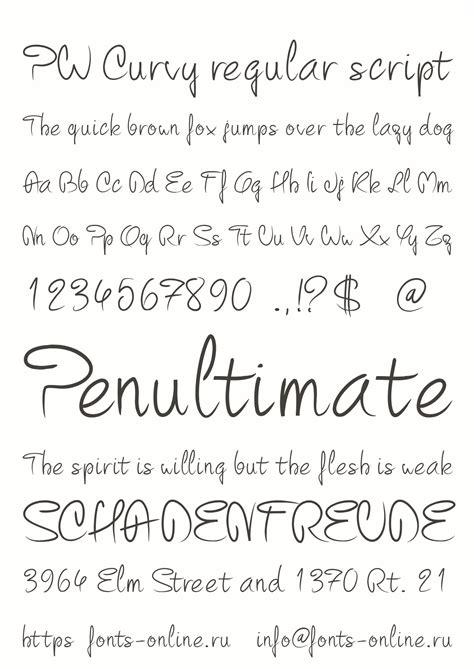 PW Curvy regular script
The quick brown fox jumps over the lazy dog
Aa Bb Cc Dd Ee Ff Gg Hh Ii Jj Kk Ll Mm
Nn Oo Pp Qq Rr Ss Tt Uu Vv Ww Xx Yy Zz
1234567890 .,!?$ @
Penultimate
The spirit is willing but the flesh is weak
SCHADENFREUDE
3964 Elm Street and 1370 Rt. 21
https fonts-online.ru info@fonts-online.ru